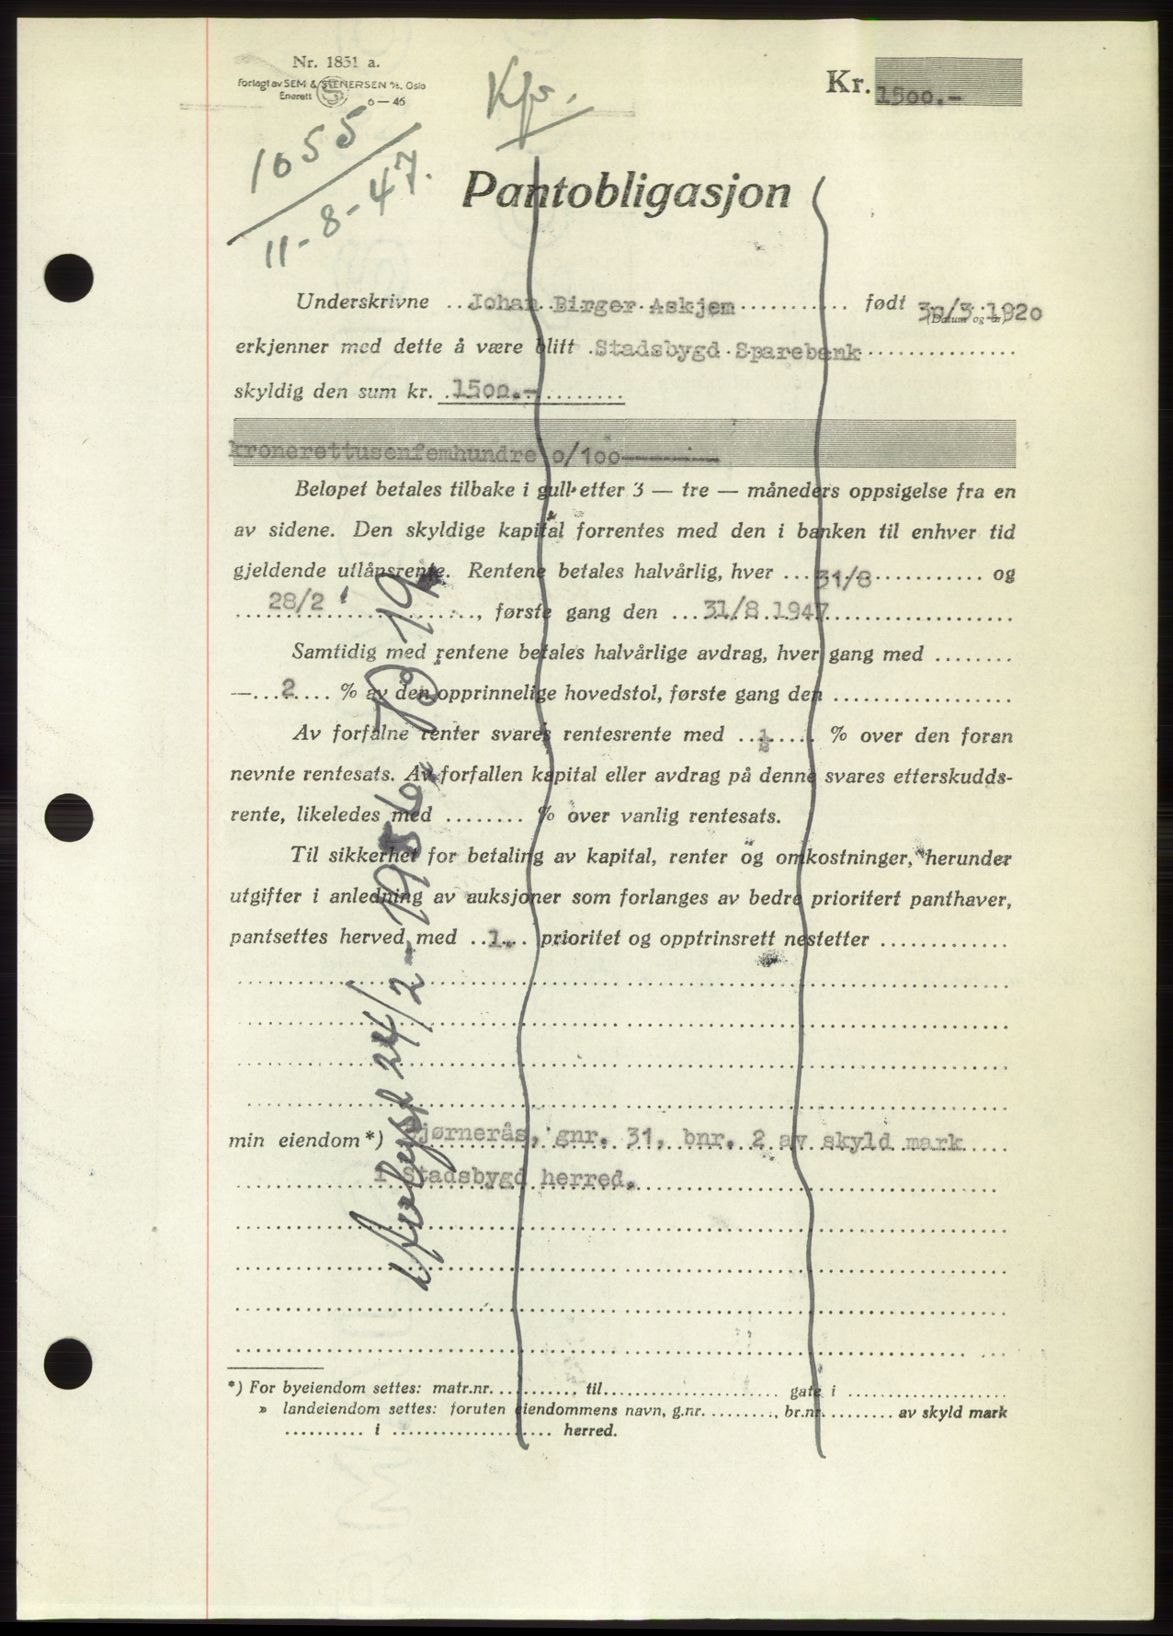 Nr. 1851 a.
Forlagt av SEM & STENERSEN A/s. Oslo
Enerett 6 — 46
Kr. 1500.-
Kfs.
1055
11-8-47.
Pantobligasjon
Underskrivne .. Johan Birger Askjem ........... født 30/3 1920
(Datum og år)
erkjenner med dette å være blitt . Stadsbygd Sparebank ...............
skyldig den sum kr. . 1500.- .........
kronerettusenfemhundre o/100
Beløpet betales tilbake i gull etter 3 — tre — måneders oppsigelse fra en
av sidene. Den skyldige kapital forrentes med den i banken til enhver tid
gjeldende utlånsrente. Rentene betales halvårlig, hver ... 31/8 ........... og
... 28/2 ..............., første gang den ... 31/8.1947 .....................
Samtidig med rentene betales halvårlige avdrag, hver gang med ........
— ... 2 .... % av den opprinnelige hovedstol, første gang den ..................
Av forfalne renter svares rentesrente med .. ½ .... % over den foran
nevnte rentesats. Av forfallen kapital eller avdrag på denne svares etterskudds-
rente, likeledes med ........ % over vanlig rentesats.
Til sikkerhet for betaling av kapital, renter og omkostninger, herunder
utgifter i anledning av auksjoner som forlanges av bedre prioritert panthaver,
pantsettes herved med .. 1. .. prioritet og opptrinsrett nestetter .............
min eiendom *) Bjørnerås, gnr. 31, bnr. 2 av skyld mark ....
i Stadsbygd herred.
*) For byeiendom settes: matr.nr. .......... til ...................... gate i ....................
» landeiendom settes: foruten eiendommens navn, g.nr. ........, br.nr. ........ av skyld mark
.......... i .................... herred.
Avlyst 24/2-1956